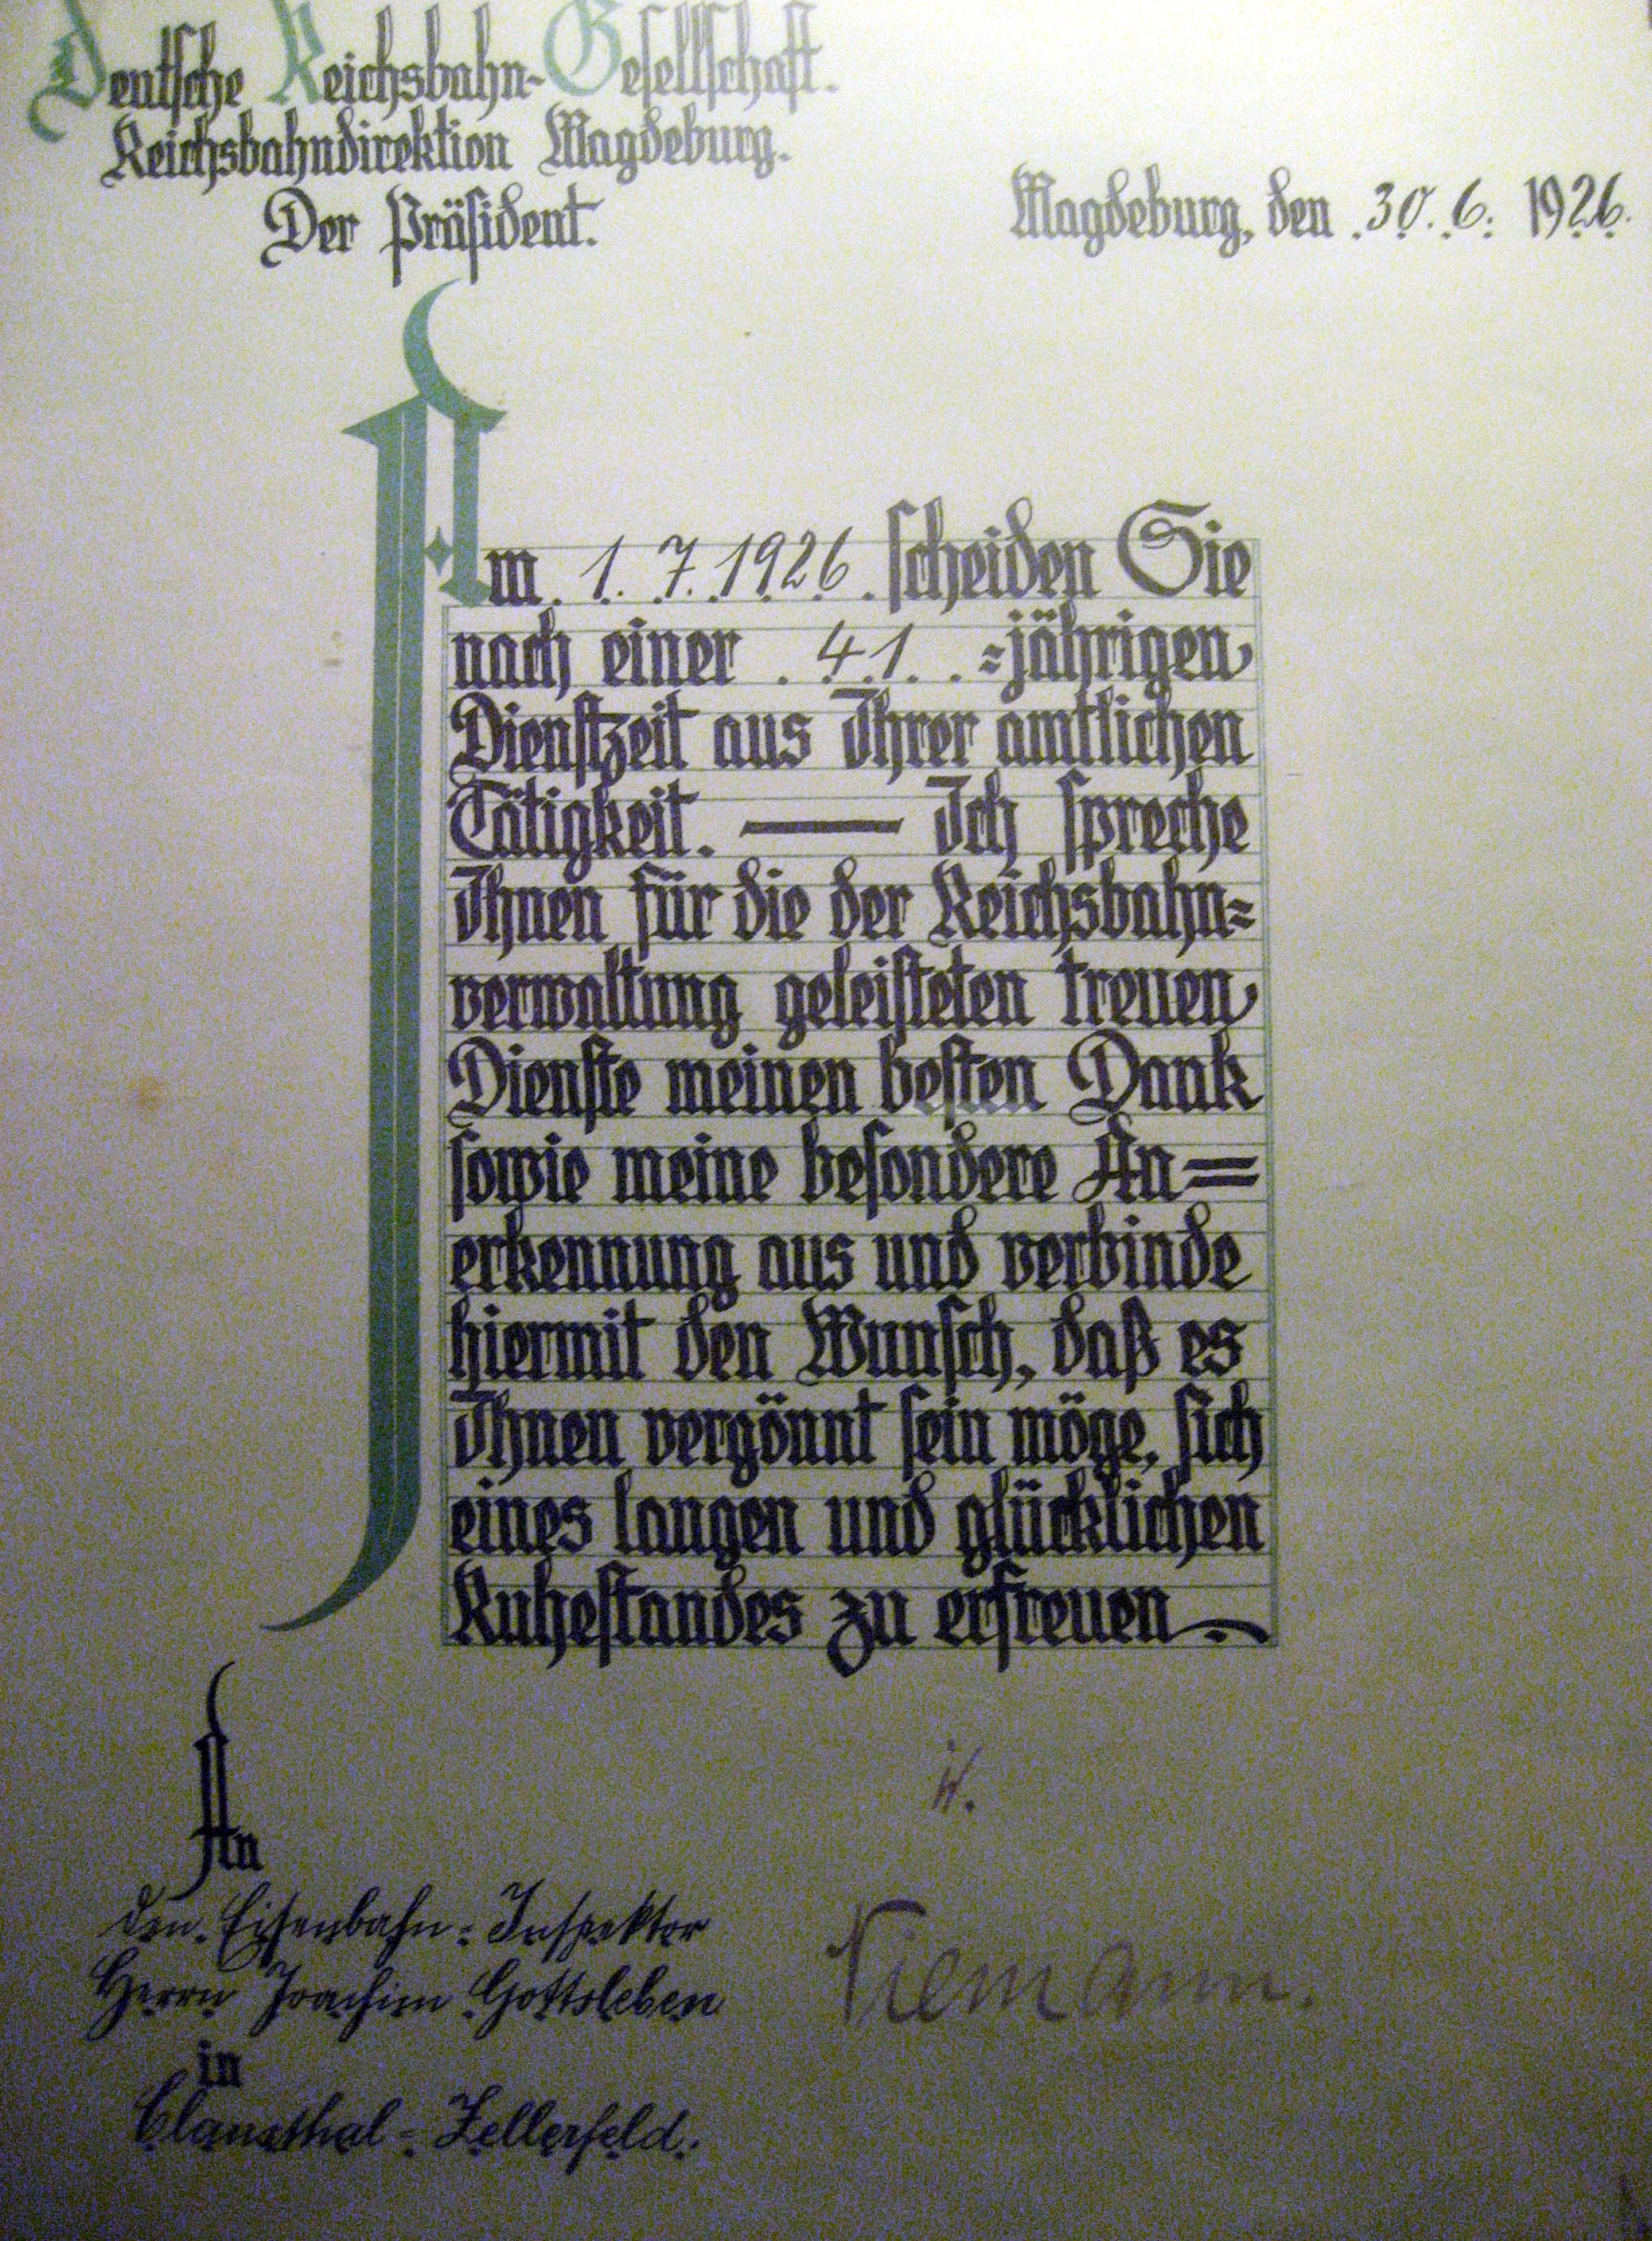 Deutsche Reichsbahn-Gesellschaft.
Reichsbahndirektion Magdeburg.
Der Präsident.
Magdeburg, den 30. 6. 1926.
Am 1. 7. 1926 scheiden Sie
nach einer 41 =jährigen
Dienstzeit aus Ihrer amtlichen
Tätigkeit. — Ich spreche
Ihnen für die der Reichsbahn=
verwaltung geleisteten treuen
Dienste meinen besten Dank
sowie meine besondere An=
erkennung aus und verbinde
hiermit den Wunsch, daß es
Ihnen vergönnt sein möge, sich
eines langen und glücklichen
Ruhestandes zu erfreuen.
An
den Eisenbahn=Inspektor
Niemann.
Herrn Joachim Gottsleben
in
Clausthal=Zellerfeld.